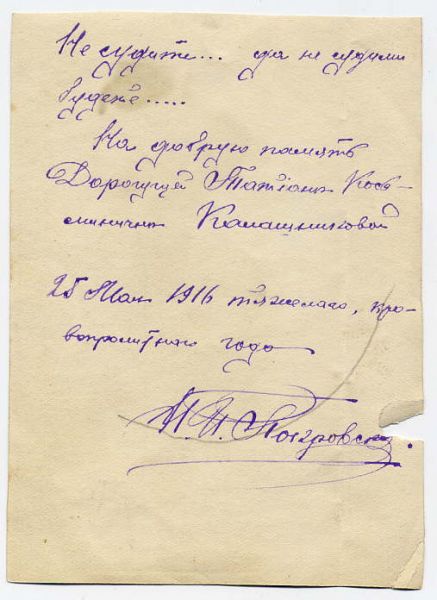 Не судите... да не судими
будете.....
На добрую память
Дорогущей Татіанѣ Кось-
миничнѣ Калашниковой
25 Мая 1916 тяжелаго, кро-
вопролитнаго года
Н. Н. Покровск